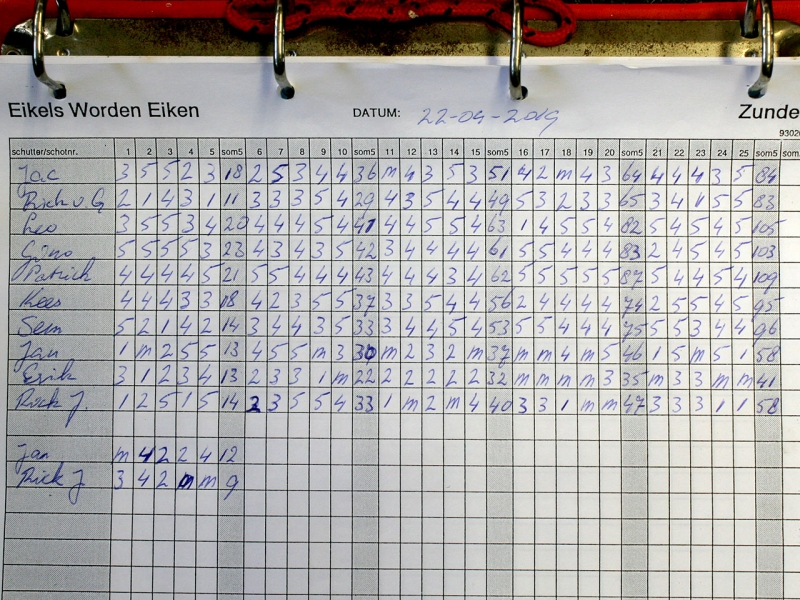 Eikels Worden Eiken DATUM: 22-04-2019 Zunde
93020
schutter/schotnr. 1 2 3 4 5 som5 6 7 8 9 10 som5 11 12 13 14 15 som5 16 17 18 19 20 som5 21 22 23 24 25 som5 som
Jac 3 5 5 2 3 18 2 5 3 4 4 36 m 4 3 5 3 51 4 2 m 4 3 64 4 4 4 3 5 84
Rick v. G 2 1 4 3 1 11 3 3 3 5 4 29 4 3 5 4 4 49 5 3 2 3 3 65 3 4 1 5 5 83
Leo 3 5 5 3 4 20 4 4 4 5 4 41 4 4 5 5 4 63 1 4 5 5 4 82 5 4 5 4 5 105
Gino 5 5 5 5 3 23 4 3 4 3 5 42 3 4 4 4 4 61 5 5 4 4 4 83 2 4 5 4 5 103
Patrick 4 4 4 4 5 21 5 5 4 4 4 43 4 4 4 3 4 62 5 5 5 5 5 87 5 4 4 5 4 109
Kees 4 4 4 3 3 18 4 2 3 5 5 37 3 3 5 4 4 56 2 4 4 4 4 74 2 5 5 4 5 95
Sem 5 2 1 4 2 14 3 4 4 3 5 33 3 4 4 5 4 53 5 5 4 4 4 75 5 5 3 4 4 96
Jan 1 m 2 5 5 13 4 5 5 m 3 30 m 2 3 2 m 37 m m 4 m 5 46 1 5 m 5 1 58
Erik 3 1 2 3 4 13 2 3 3 1 m 22 2 2 2 2 2 32 m m m m 3 35 m 3 3 m m 41
Rick J. 1 2 5 1 5 14 2 3 5 5 4 33 1 m 2 m 4 40 3 3 1 m m 47 3 3 3 1 1 58
Jan m 4 2 2 4 12
Rick J 3 4 2 m m 9